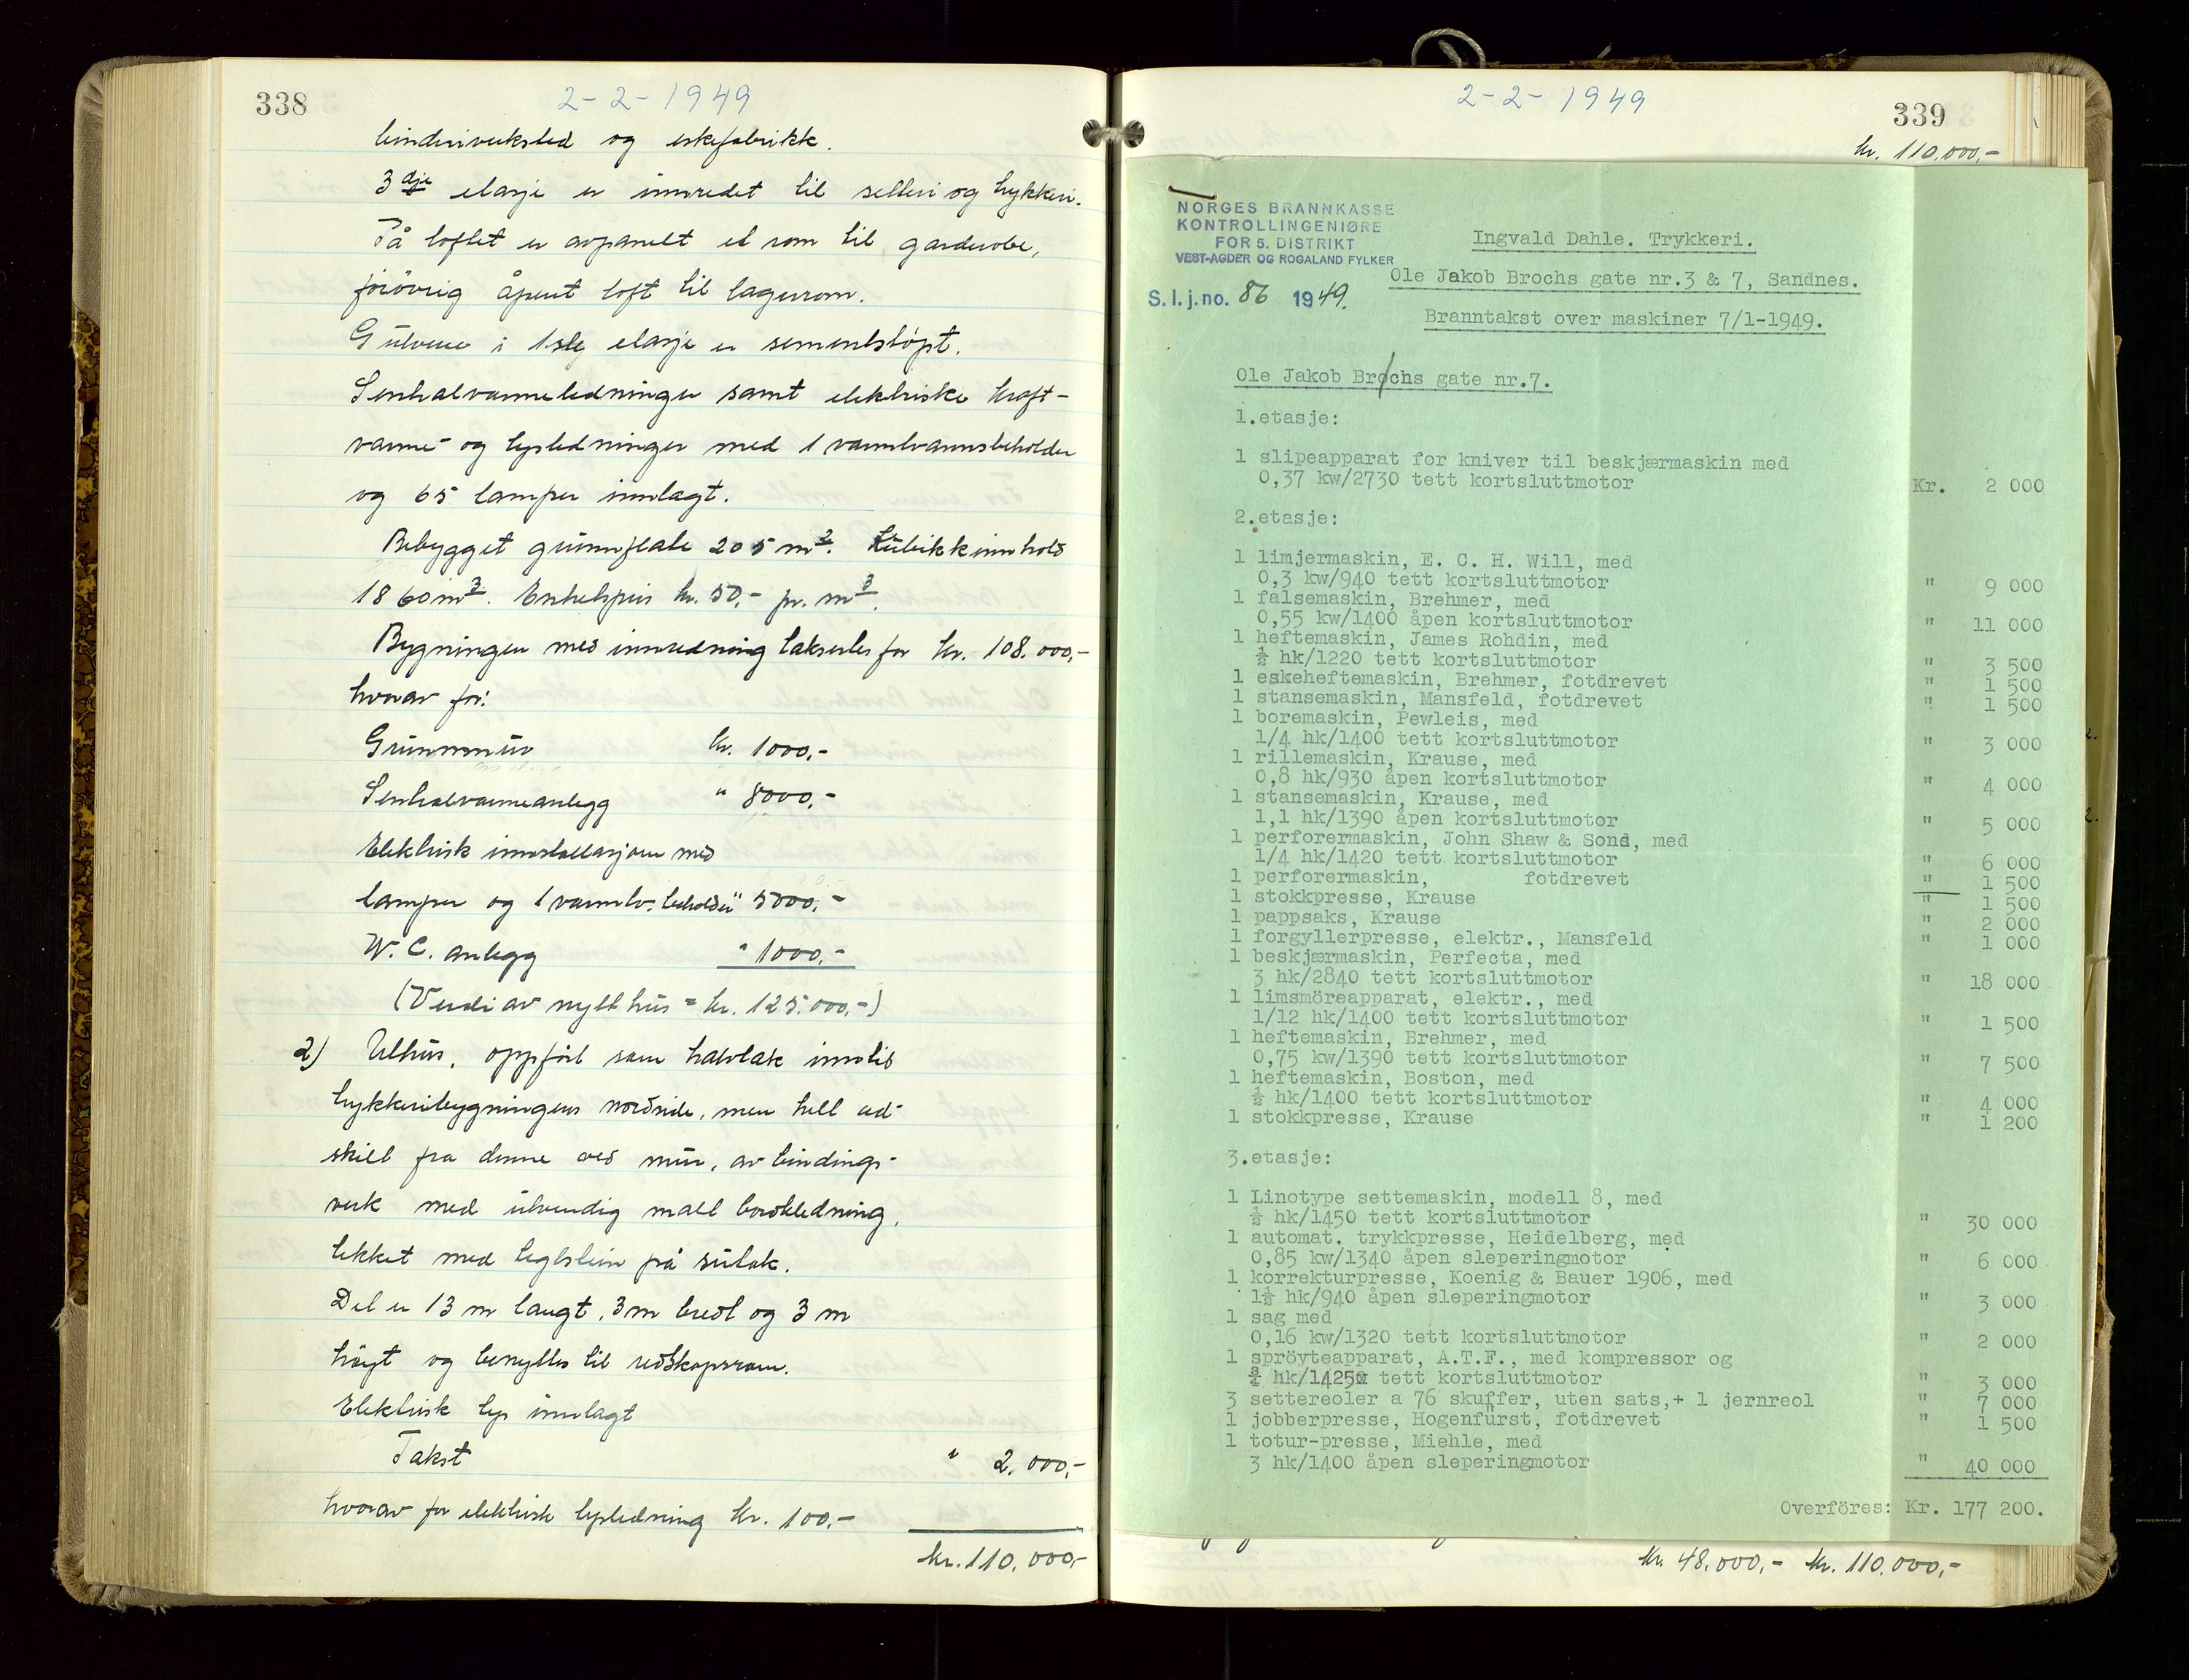 338
2-2-1949
binderiverksted og eskefabrikk.
3dje etasje er innredet til setteri og trykkeri.
På loftet er avpanelt et rom til garderobe,
forövrig åpent loft til lagerrom.
Gulvene i 1ste etasje er sementstöpt.
Sentralvarmeledninger samt elektriske kraft-
varme- og lysledninger med 1 varmtvannsbeholder
og 65 lamper innlagt.
Bebygget grunnflate 205 m². Kubikkinnhold
1860 m³. Enhetspris kr. 50,- pr. m³.
Bygningen med innredning takseres for kr. 108.000,-
hvorav for:
Grunnmur kr. 1000,-
Sentralvarmeanlegg " 8000,-
Elektrisk innstallasjon med
lamper og 1 varmtv. beholder " 5000,-
W.C. anlegg " 1000,-
(Verdi av nytt hus = kr. 125.000,-)
2) Uthus, oppfört som halvtak inntil
trykkeribygningens nordside, men helt ad-
skilt fra denne ved mur, av bindings-
verk med utvendig malt bordkledning,
tekket med teglstein på sutak.
Det er 13 m langt, 3 m bredt og 3 m
höyt og benyttes til redskapsrom.
Elektrisk lys innlagt
Takst " 2.000,-
hvorav for elektrisk lysledning kr. 100,-
kr. 110.000,-
2-2-1949
339
kr. 110.000,-
NORGES BRANNKASSE
KONTROLLINGENIØRE
FOR 5. DISTRIKT
VEST-AGDER OG ROGALAND FYLKER
S.l.j.no. 86 1949.
Ingvald Dahle. Trykkeri.
Ole Jakob Brochs gate nr.3 & 7, Sandnes.
Branntakst over maskiner 7/1-1949.
Ole Jakob Brochs gate nr.7.
1.etasje:
1 slipeapparat for kniver til beskjærmaskin med
0,37 kw/2730 tett kortsluttmotor Kr. 2 000
2.etasje:
1 limjermaskin, E. C. H. Will, med
0,3 kw/940 tett kortsluttmotor " 9 000
1 falsemaskin, Brehmer, med
0,55 kw/1400 åpen kortsluttmotor " 11 000
1 heftemaskin, James Rohdin, med
½ hk/1220 tett kortsluttmotor " 3 500
1 eskeheftemaskin, Brehmer, fotdrevet " 1 500
1 stansemaskin, Mansfeld, fotdrevet " 1 500
1 boremaskin, Pewleis, med
1/4 hk/1400 tett kortsluttmotor " 3 000
1 rillemaskin, Krause, med
0,8 hk/930 åpen kortsluttmotor " 4 000
1 stansemaskin, Krause, med
1,1 hk/1390 åpen kortsluttmotor " 5 000
1 perforermaskin, John Shaw & Sons, med
1/4 hk/1420 tett kortsluttmotor " 6 000
1 perforermaskin, fotdrevet " 1 500
1 stokkpresse, Krause " 1 500
1 pappsaks, Krause " 2 000
1 forgyllerpresse, elektr., Mansfeld " 1 000
1 beskjærmaskin, Perfecta, med
3 hk/2840 tett kortsluttmotor " 18 000
1 limsmöreapparat, elektr., med
1/12 hk/1400 tett kortsluttmotor " 1 500
1 heftemaskin, Brehmer, med
0,75 kw/1390 tett kortsluttmotor " 7 500
1 heftemaskin, Boston, med
½ hk/1400 tett kortsluttmotor " 4 000
1 stokkpresse, Krause " 1 200
3.etasje:
1 Linotype settemaskin, modell 8, med
½ hk/1450 tett kortsluttmotor " 30 000
1 automat. trykkpresse, Heidelberg, med
0,85 kw/1340 åpen sleperingmotor " 6 000
1 korrekturpresse, Koenig & Bauer 1906, med
1½ hk/940 åpen sleperingmotor " 3 000
1 sag med
0,16 kw/1320 tett kortsluttmotor " 2 000
1 spröyteapparat, A.T.F., med kompressor og
¾ hk/1425 tett kortsluttmotor " 3 000
3 settereoler a 76 skuffer, uten sats,+ 1 jernreol " 7 000
1 jobberpresse, Hogenfürst, fotdrevet " 1 500
1 totur-presse, Miehle, med
3 hk/1400 åpen sleperingmotor " 40 000
Overföres: Kr. 177 200.
kr. 48.000,- kr. 110.000,-